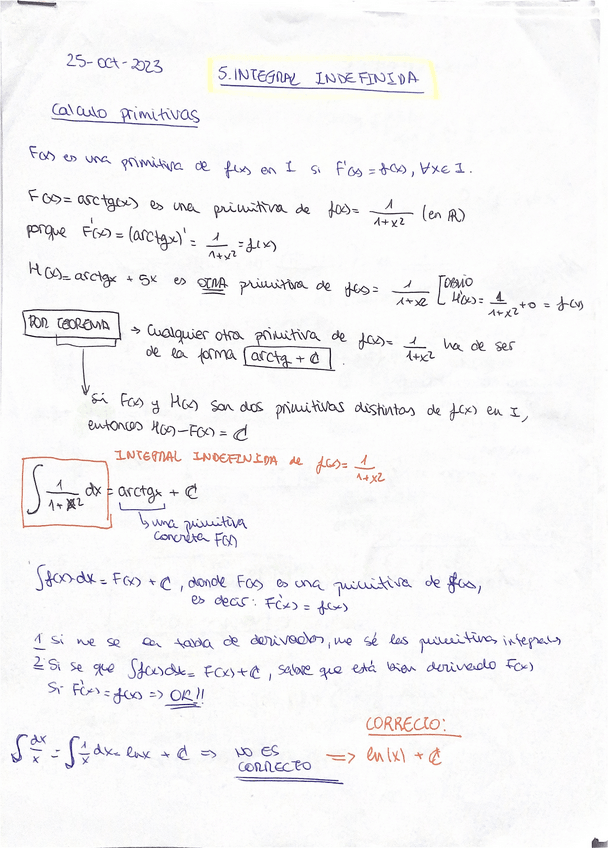 25-oct-2023
5. INTEGRAL INDEFINIDA
Calculo primitivas
F(x) es una primitiva de f(x) en I si F'(x) = f(x), ∀x ∈ I.
F(x) = arctg(x) es una primitiva de f(x) = 1/(1+x²) (en ℝ)
porque F'(x) = (arctgx)' = 1/(1+x²) = f(x)
H(x) = arctgx + 5x es OTRA primitiva de f(x) = 1/(1+x²) [OBVIO H'(x) = 1/(1+x²) + 0 = f(x)
POR TEOREMA → Cualquier otra primitiva de f(x) = 1/(1+x²) ha de ser
de la forma arctg + C.
Si F(x) y H(x) son dos primitivas distintas de f(x) en I,
entonces H(x) - F(x) = C
INTEGRAL INDEFINIDA de f(x) = 1/(1+x²)
∫ 1/(1+x²) dx = arctgx + C
↳ una primitiva
concreta F(x)
∫f(x)·dx = F(x) + C, donde F(x) es una primitiva de f(x),
es decir: F'(x) = f(x)
1 Si me se la tabla de derivadas, me sé las primitivas integrals
2 Si se que ∫f(x)dx = F(x) + C, sabre que está bien derivado F(x)
Si F'(x) = f(x) => OK!!
CORRECTO:
∫ dx/x = ∫ 1/x dx = lnx + C => NO ES CORRECTO => ln|x| + C